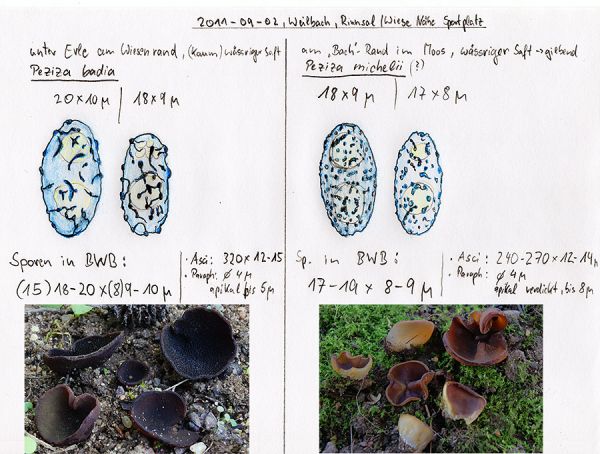 2011-09-02, Weilbach, Rinnsal/Wiese Nähe Sportplatz
unter Erle am Wiesenrand, (kaum) wässriger Saft
Peziza badia
20x10µ | 18x9µ
Sporen in BWB:
(15)18-20x(8)9-10µ
• Asci: 320x12-15
• Paraph: ø 4µ
apikal bis 5µ
am 'Bach'-Rand im Moos, wässriger Saft → gilbend
Peziza michelii (?)
18x9µ | 17x8µ
Sp. in BWB:
17-19x 8-9µ
• Asci: 240-270x12-14µ
• Paraph: ø 4µ
apikal verdickt, bis 8µ